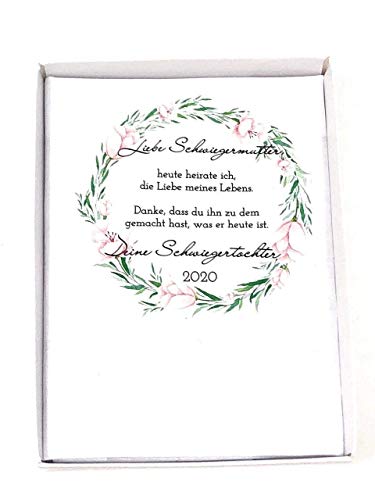 Liebe Schwiegermutter
heute heirate ich,
die Liebe meines Lebens.
Danke, dass du ihn zu dem
gemacht hast, was er heute ist.
Deine Schwiegertochter
2020